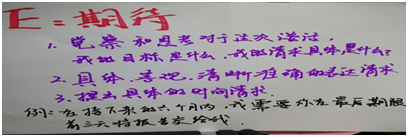 E：期待
1. 觉察和思考对于这次谈话，
我的目标是什么，我的请求具体是什么？
2. 具体、客观、清晰准确的表达请求
3. 提出具体的时间请求.
例：在接下来的六个月内，我需要你在最后期限
前三天将报告交给我.